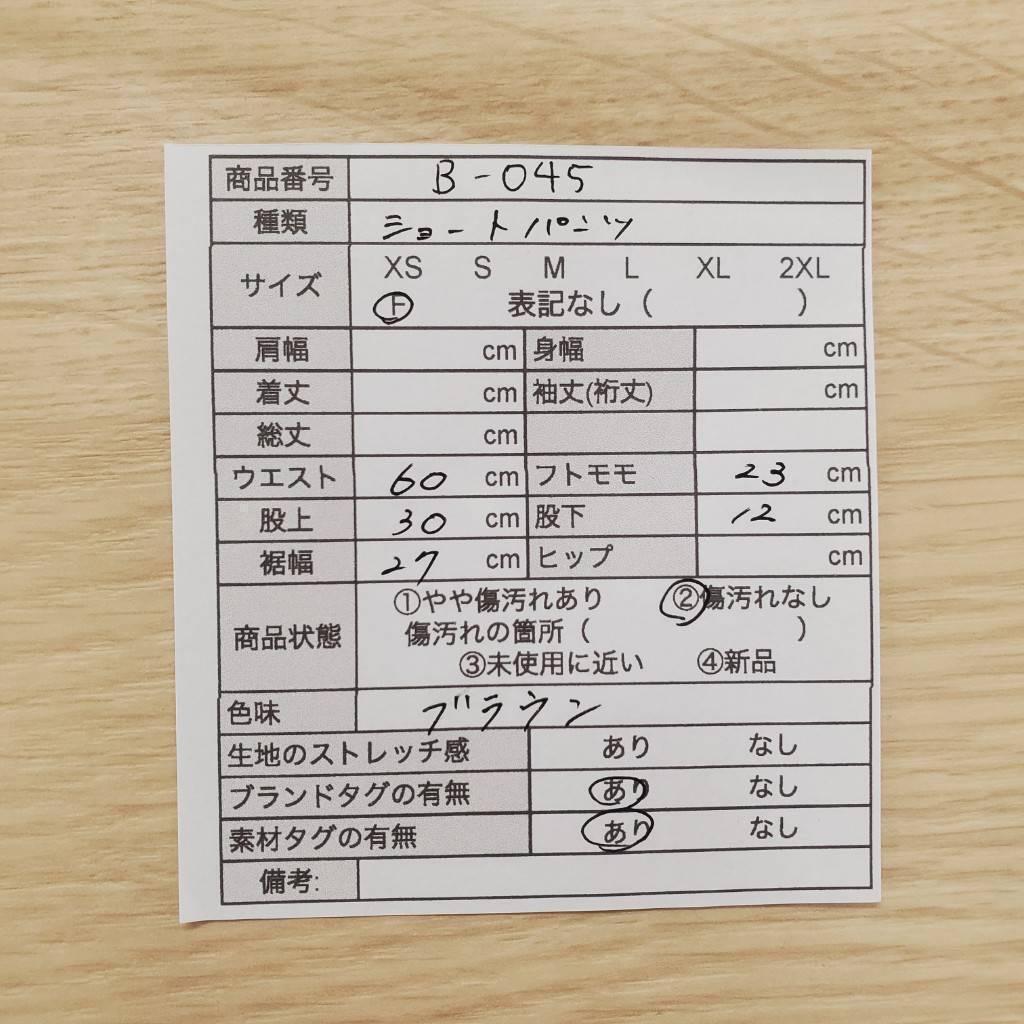 商品番号 B-045
種類 ショートパンツ
サイズ XS S M L XL 2XL
F 表記なし ( )
肩幅 cm 身幅 cm
着丈 cm 袖丈(裄丈) cm
総丈 cm
ウエスト 60 cm フトモモ 23 cm
股上 30 cm 股下 12 cm
裾幅 27 cm ヒップ cm
①やや傷汚れあり ②傷汚れなし
商品状態 傷汚れの箇所 ( )
③未使用に近い ④新品
色味 ブラウン
生地のストレッチ感 あり なし
ブランドタグの有無 あり なし
素材タグの有無 あり なし
備考: